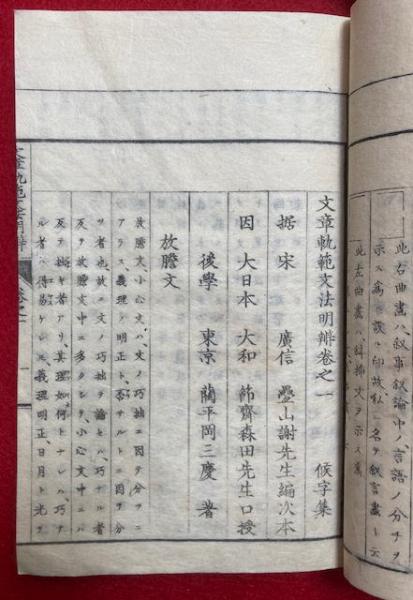 此右曲畫ハ叙事叙論中ノ、言語ノ分チヲ
示ス為ニ設ク印故ニ私ニ名ヲ叙言畫ト云
此左曲畫ハ 挿文ヲ示ス
文章軌範文法明辨卷之一 候字集
据 宋 廣信 疊山謝先生編次本
因 大日本 大和 節齋森田先生口授
後學 東京 藺平岡三慶 著
放膽文
放膽文、小心文ハ、文ノ巧拙ニ因ヲ分ツニ
アラス、義理ノ明正ト、否サルトニ因ヲ分ツ
ヲ者也、故ニ文ノ巧拙ヲ論セハ、巧ナル者
反ヲ放膽文中ニ多クシテ、小心文中ニハ
反テ拙キ者アリ、其理如何トナレハ、巧ナ
ル者ハ得易ケレモ、義理明正、日月ト光ヲ